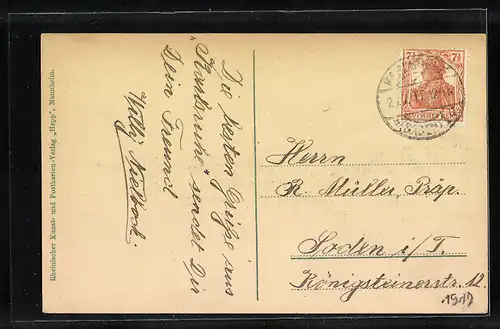 Die besten Grüße aus
"Karlsruhe" sendet Dir
Dein Freund
Willi
Herrn
R. Müller, Präp.
Soden i/T.
Königsteinerstr. 12.
1917
Rheinischer Kunst- und Postkarten-Verlag „Hepp", Mannheim.
7½ 7½
DEUTSCHES REICH